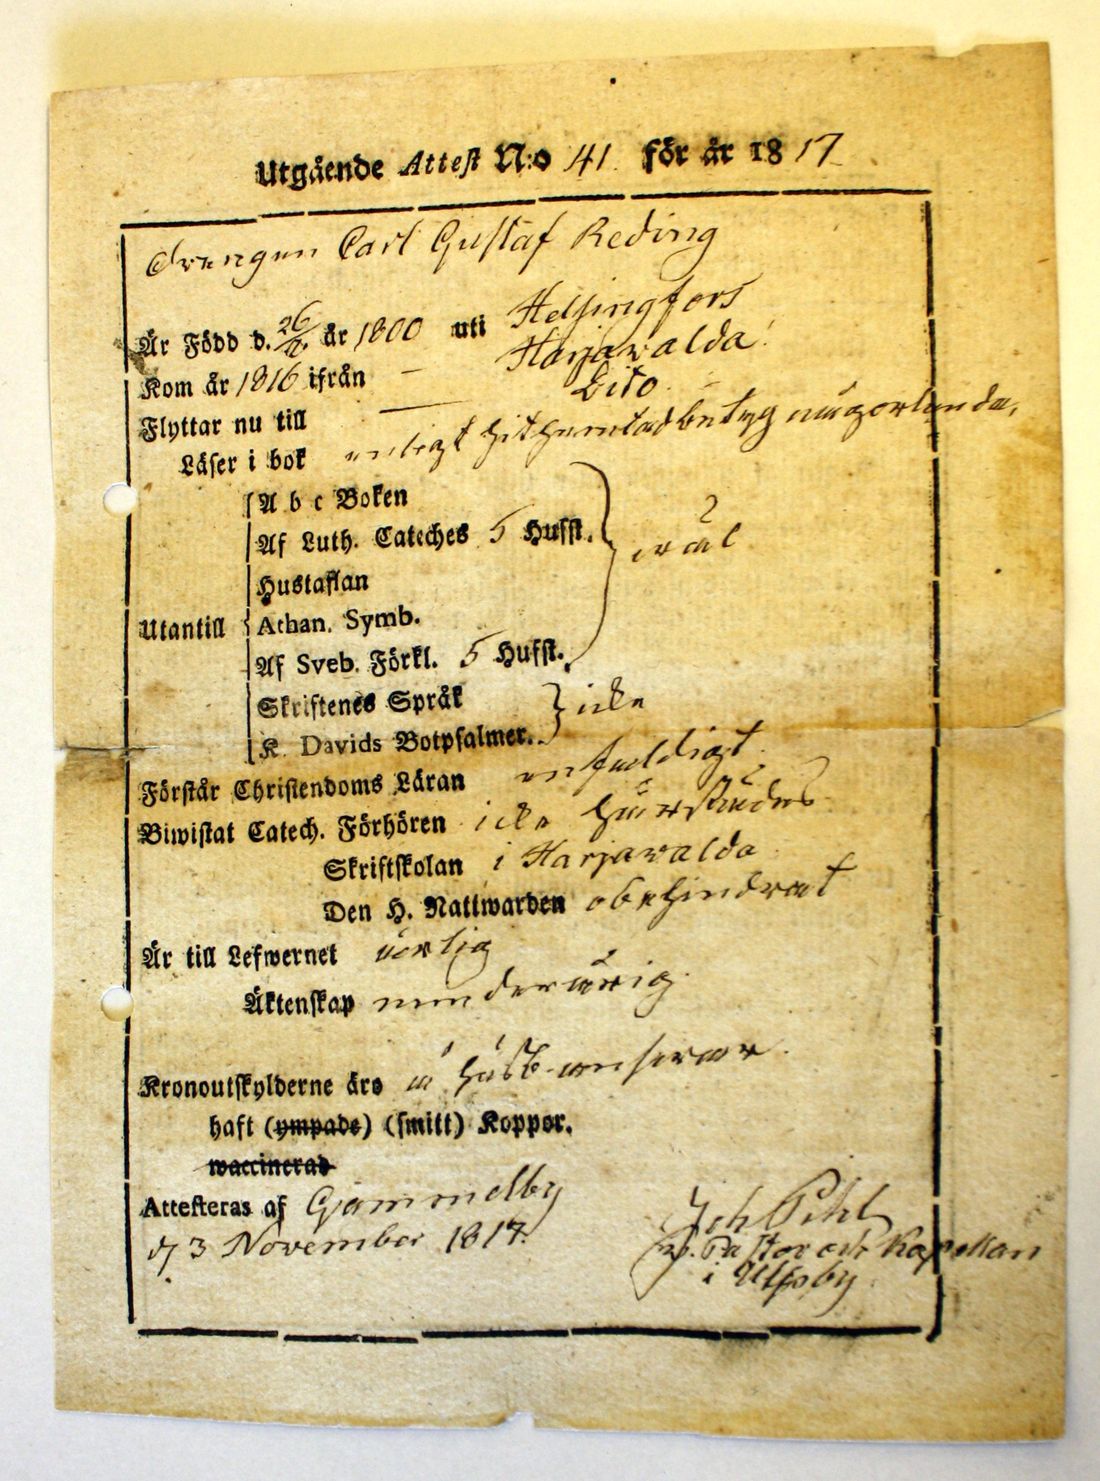 Utgående Attest N:o 41. för år 1817
Drengen Carl Gustaf Reding
Är Född d. 26/ år 1800 uti Helsingfors
Kom år 1816 ifrån – Harjavalda
Flyttar nu till — Eito
Läser i bok enligt hithemtad betyg någorlunda,
A b c Boken
Af Luth. Cateches 5 Hufst.
wäl
Hustaflan
Utantill
Athan. Symb.
Af Sveb. Förkl. 5 Hufst.
Skriftenes Språk
icke
K. Davids Botpsalmer.
Förstår Christendoms Läran enfaldigt.
Biwistat Catech. Förhören icke härstädes
Skriftskolan i Harjavalda
Den H. Nattwarden obehindrat
Är till Lefwernet ärlig
Äktenskap minderårig.
Kronoutskylderne äro
haft (ympade) (smitt) Koppor.
waccinerad
Attesteras af Gammelby
d 3 November 1817.
Joh Pihl
Pastor och Kapellan
i Ulfsby